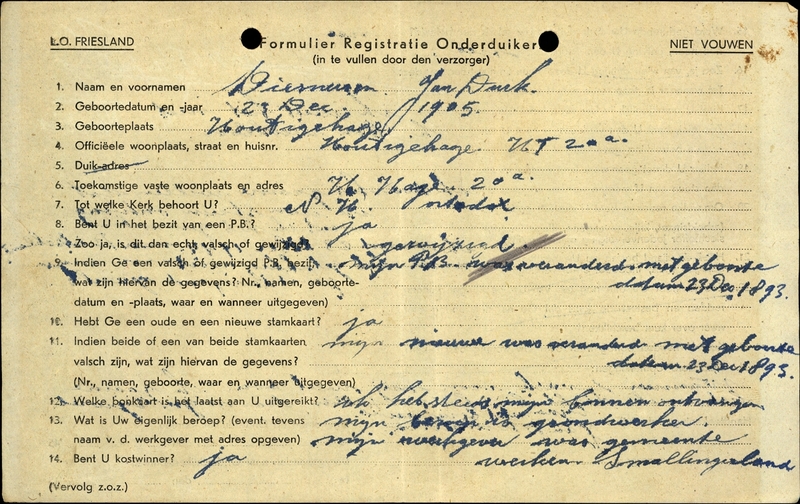 L.O. FRIESLAND Formulier Registratie Onderduikers NIET VOUWEN
(in te vullen door den verzorger)
1. Naam en voornamen Jan Durk.
2. Geboortedatum en -jaar 23 Dec. 1905.
3. Geboorteplaats Houtigehage
4. Officiëele woonplaats, straat en huisnr. Houtigehage HT 20a.
5. Duik-adres
6. Toekomstige vaste woonplaats en adres H. Hage 20a.
7. Tot welke Kerk behoort U? N H. ortodox
8. Bent U in het bezit van een P.B.? ja
Zoo ja, is dit dan echt, valsch of gewijzigd? gewijzigd.
9. Indien Ge een valsch of gewijzigd P.B. bezit, mijn P.B. was veranderd met geboorte
wat zijn hiervan de gegevens? Nr., namen, geboorte- datum 23 Dec 1893.
datum en -plaats, waar en wanneer uitgegeven)
10. Hebt Ge een oude en een nieuwe stamkaart? ja
11. Indien beide of een van beide stamkaarten mijn nieuwe was veranderd met geboorte
valsch zijn, wat zijn hiervan de gegevens? datum 23 Dec 1893.
(Nr., namen, geboorte, waar en wanneer uitgegeven)
12. Welke bonkaart is het laatst aan U uitgereikt? ik heb steeds mijn bonnen ontvangen
13. Wat is Uw eigenlijk beroep? (event. tevens mijn beroep is grondwerker.
naam v. d. werkgever met adres opgeven) mijn werkgever was gemeente
14. Bent U kostwinner? ja werken Smallingerland
(Vervolg z.o.z.)